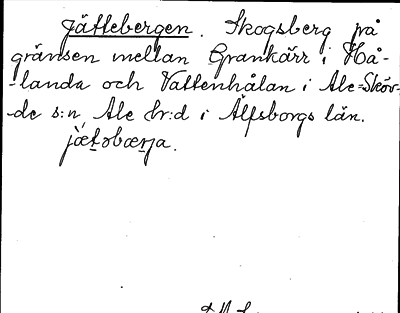 Jättebergen. Skogsberg på
gränsen mellan Grankärr i Hå-
-landa och Vattenhålan i Ale-Sköv-
-de s:n, Ale hr:d i Älfsborgs län.